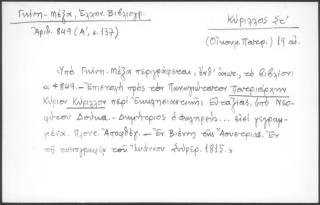 Γκίνη-Μέξα, Ἑλλην. Βιβλιογρ.
Ἀριθ. 849 (Α', σ. 137)
Κύριλλος Στ'
(Οἰκουμ. Πατρ.) 19 αἰ.
Ὑπό Γκίνη-Μέξα περιγράφεται, ἔνθ' ἄνωτ., τό βιβλίον:
«*849.- Ἐπιστολή πρός τόν Παναγιώτατον Πατριάρχην
Κύριον Κύριλλον περί Ἐκκλησιαστικῆς Εὐταξίας, ὑπό Νεο-
φύτου Δούκα.- Δημήτριος ὁ Φαληρεύς... εἰσί γεγραμ-
μένα. Πλουτ. Ἀποφθέγ.- Ἐν Βιέννῃ τῆς Ἀουστρίας. Ἐν
τῇ τυπογραφίᾳ τοῦ Ἰωάννου Σνύρερ. 1815.»